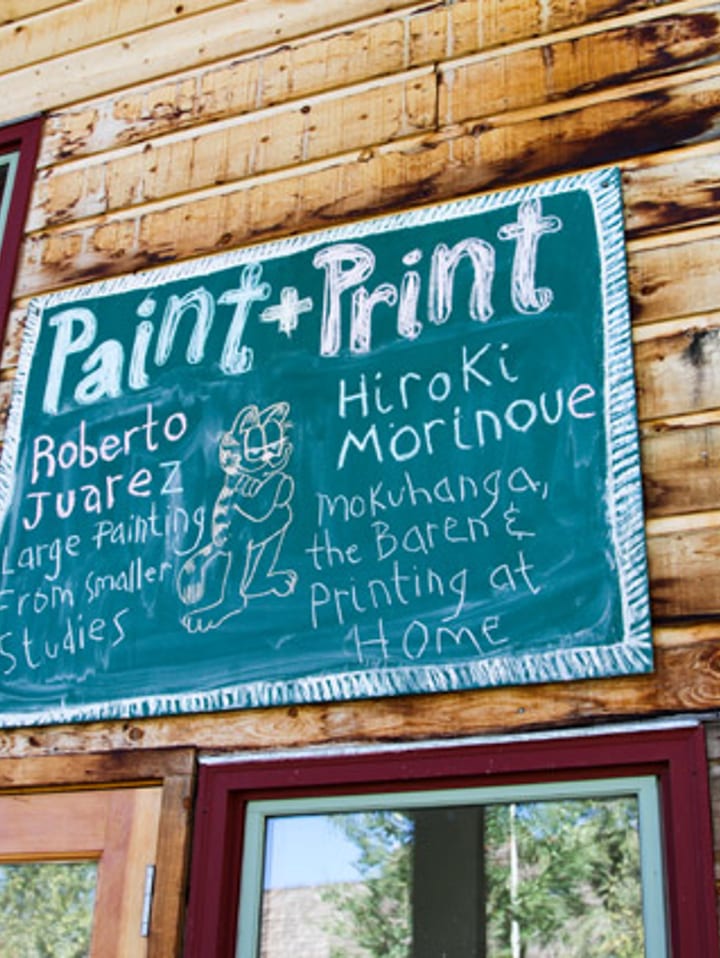 Paint + Print
Roberto
Juarez
Large Painting
From Smaller
Studies
Hiroki
Morinoue
Mokuhanga,
the Baren &
Printing at
Home